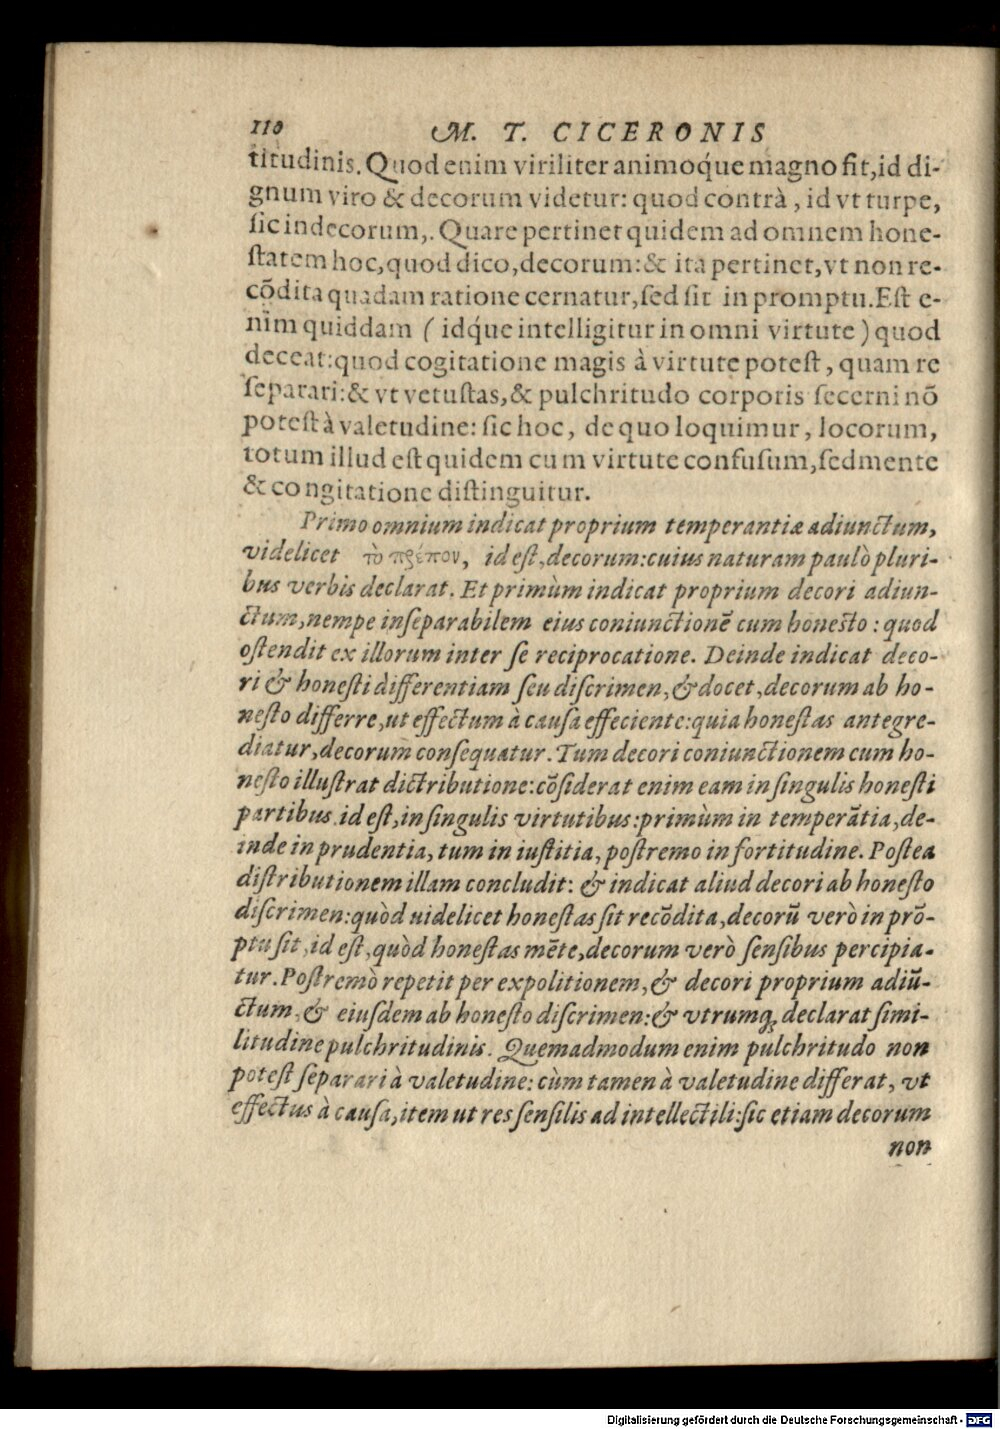 110 M. T. CICERONIS
titudinis. Quod enim viriliter animoq́ue magno fit, id di-
gnum viro & decorum videtur: quod contrà, id vt turpe,
ſic indecorum,. Quare pertinet quidem ad omnem hone-
ſtatem hoc, quod dico, decorum: & ita pertinet, vt non re-
cõdita quadam ratione cernatur, ſed ſit in promptu. Eſt e-
nim quiddam ( idq́ue intelligitur in omni virtute ) quod
deceat: quod cogitatione magis à virtute poteſt, quam re
ſeparari: & vt vetuſtas, & pulchritudo corporis ſecerni nõ
poteſt à valetudine: ſic hoc, de quo loquimur, locorum,
totum illud eſt quidem cum virtute confuſum, ſedmente
& congitatione diſtinguitur.
Primo omnium indicat proprium temperantiæ adiunctum,
videlicet τὸ πρέπον, id eſt, decorum: cuius naturam paulò pluri-
bus verbis declarat. Et primùm indicat proprium decori adiun-
ctum, nempe inſeparabilem eius coniunctionẽ cum honeſto: quod
oſtendit ex illorum inter ſe reciprocatione. Deinde indicat deco-
ri & honeſti differentiam ſeu diſcrimen, & docet, decorum ab ho-
neſto differre, ut effectum à cauſa effeciente: quia honeſtas antegre-
diatur, decorum conſequatur. Tum decori coniunctionem cum ho-
neſto illuſtrat dictributione: cõſiderat enim eam in ſingulis honeſti
partibus. id eſt, in ſingulis virtutibus: primùm in temperãtia, de-
inde in prudentia, tum in iuſtitia, poſtremo in fortitudine. Poſtea
diſtributionem illam concludit: & indicat aliud decori ab honeſto
diſcrimen: quòd uidelicet honeſtas ſit recõdita, decorũ verò in prõ-
ptu ſit, id eſt, quòd honeſtas mẽte, decorum verò ſenſibus percipia-
tur. Poſtremò repetit per expolitionem, & decori proprium adiũ-
ctum, & eiuſdem ab honeſto diſcrimen: & vtrumq; declarat ſimi-
litudine pulchritudinis. Quemadmodum enim pulchritudo non
poteſt ſeparari à valetudine: cùm tamen à valetudine differat, vt
effectus à cauſa, item ut res ſenſilis ad intellectili: ſic etiam decorum
non
Digitalisierung gefördert durch die Deutsche Forschungsgemeinschaft - DFG